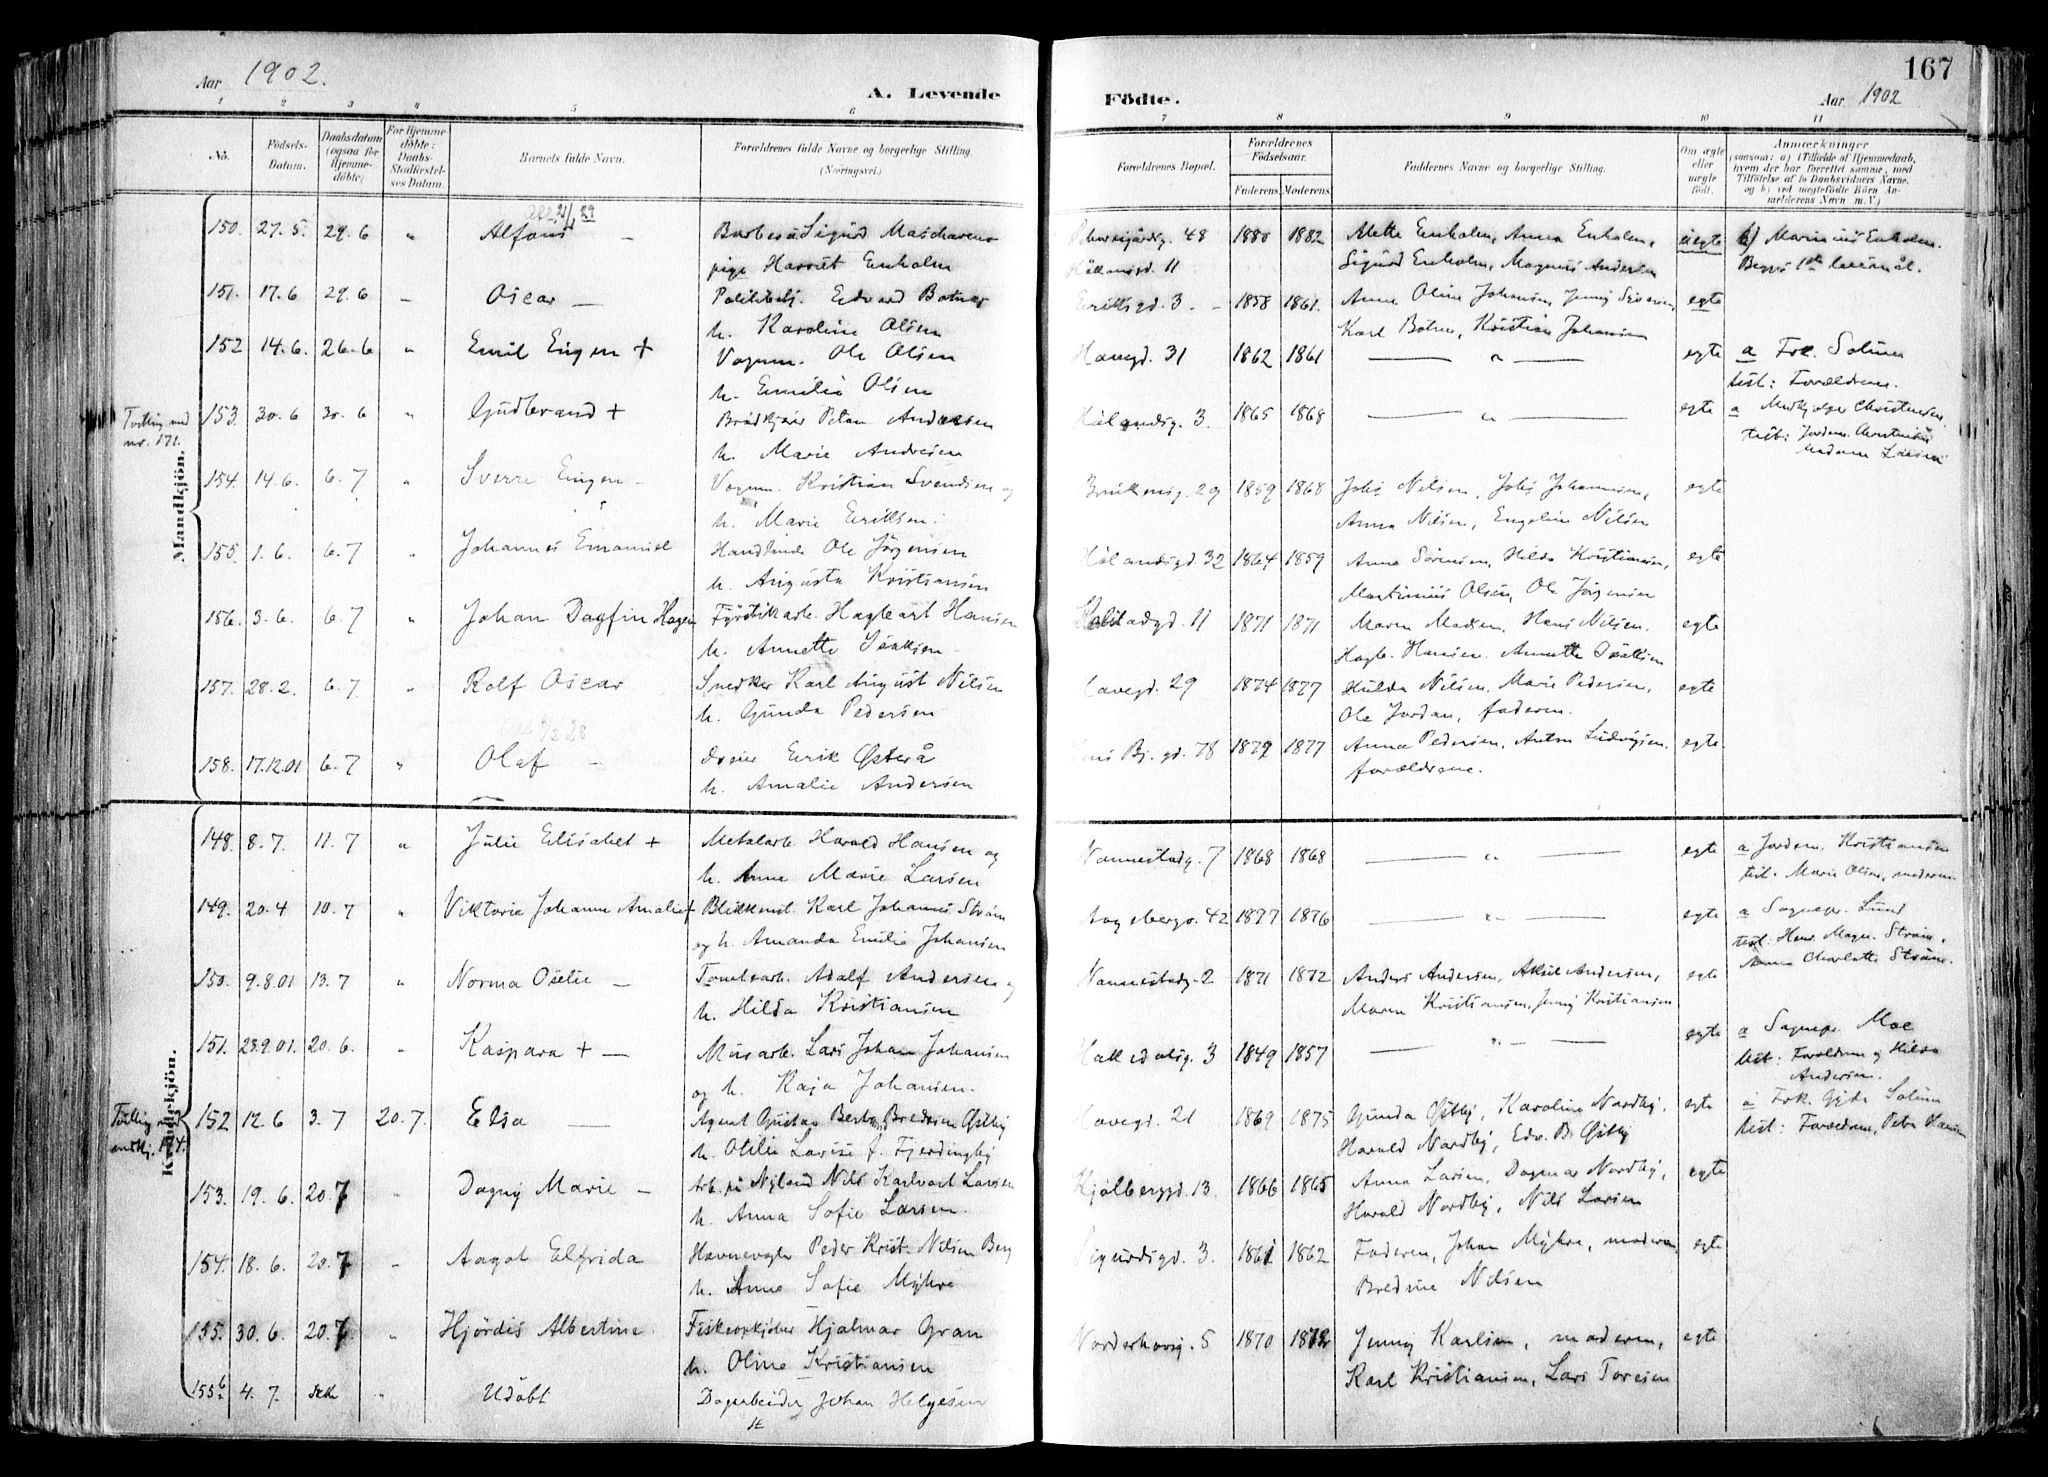 Aar 1902.
A. Levende
Födte.
Aar 1902
167
1 2 3 4 5 6 7 8 9 10 11
No. Födsels-Datum. Daabsdatum (ogsaa for Hjemmedöbte) For Hjemmedöbte: Daabs-Stadfæstelses Datum. Barnets fulde Navn. Forældrenes fulde Navne og borgerlige Stilling. (Næringsvei.) Forældrenes Bopæl. Forældrenes Födselsaar. Faderens. Moderens. Faddernes Navne og borgerlige Stilling. Om ægte eller uægte födt. Anmærkninger
(saasom: a) i Tilfælde af Hjemmedaab, hvem der har forrettet samme, med Tilföielse af to Daabsvidners Navne, og b) ved uægtefödte Börn Anmelderens Navn m.V.)
Mandkjön.
150. 27.5. 29.6 " Alfons – Sigurd 48 1880 1882 Alette Enholm, Anna Enholm, uegte b) Marinius Enholm.
pige Harriet Enholm 11 Sigurd Enholm, Magnus Andersen Begges 1ste leiermål.
151. 17.6 29.6 " Oscar – Politibetj. Edvard Botner 3. 1858 1861. Anna Oline Johansen, Jenny egte
h. Karoline Olsen Karl Botner, Kristian Johansen
152 14.6. 26.6 " Emil Eugen + Vognm. Ole Olsen Havegd. 31 1862 1861 — " — egte a Frk. Solum
h. Emilie Olsen test: Forældrene.
Tvilling med nr. 171.
153. 30.6 30.6 " Gudbrand + Andersen 3. 1865 1868 — " — egte a Christensen
h. Marie Andersen test: Jordm. Christensen
Madam Larsen
154. 14.6. 6.7 " Sverre Eugen – Vognm. Kristian Svendsen og 29 1859 1868 Nilsen, Johannesen, egte
h. Marie Eriksen. Anna Nilsen, Engeline Nilsen
155. 1.6. 6.7 " Johannes Emanuel Handl. Ole Jörgensen 32 1864 1859 Anna Sörensen, Hilda Kristiansen, egte
h. Augusta Kristiansen Martinius Olsen, Ole Jörgensen
156. 3.6. 6.7 " Johan Dagfin Hagen Fyrstikarb. Hagbart Hansen 11 1871 1871 Maren Madsen, Hans Nilsen. egte
h. Annette Isaksen Hagb. Hansen. Annette Isaksen
157. 28.2. 6.7 " Rolf Oscar Snedker Karl August Nilsen Havegd. 29 1874 1877 Hulda Nilsen. Marie Pedersen, egte
h. Gunda Pedersen Ole Jordan, faderen.
158. 17.12.01 6.7 " Olaf – Erik Österå Bj. gd. 78 1879 1877 Anna Pedersen, Anton Ludvigsen. egte
h. Amalie Andersen forældrene.
Kvindekjön.
148. 8.7. 11.7 " Julie Elisabet + Metalarb. Harald Hansen og Nannestadg. 7 1868 1868 — " — egte a Jordm. Kristiansen
h. Anna Marie Larsen test. Marie Olsen, moderen.
149. 20.4 10.7 " Viktoria Johanne Amalie + Blikkensl. Karl Johannes Ström 42 1877 1876 — " — egte a Sognepr. Lund
og h. Amanda Emilie Johansen test: Magn. Ström,
Anna Charlotte Ström.
150. 9.8.01 13.7 " Norma Oselie – Tomtearb. Adolf Andersen og Nannestadg. 2 1871 1872 Anders Andersen, Aksel Andersen, egte
h. Hilda Kristiansen Maren Kristiansen, Jenny Kristiansen
151. 23.9.01. 20.6. " Kaspara + – Murarb. Lars Johan Johansen 3 1849 1857 — " — egte a Sognepr. Moe
og h. Kaja Johansen. test: Forældrene og Hilda
Andersen.
152 12.6 3.7 20.7. Elsa – Agent Gustav Bredesen Östby Havegd. 21 1869 1875 Gunda Östby, Karoline Nordby, egte a Frk. Gyda Solum
h. Otilie Lovise f. Fjerdingby Harald Nordby, Edv. B. Östby test: Forældrene, Petra Hansen
153. 19.6. 20.7 " Dagny Marie – Arb. på Nyland Nils Karlvart Larsen Kjölberggd. 13. 1866 1865 Anna Larsen, Dagmar Nordby, egte
h. Anna Sofie Larsen. Harald Nordby, Nils Larsen
154. 18.6. 20.7 " Aagot Elfrida Havnevogter Peder Krist. Nilsen Berg Sigurdsgd. 3. 1861 1862 Faderen, Johan Myhre, moderen, egte
h. Anne Sofie Myhre Bredine Nilsen
155. 30.6. 20.7. " Hjördis Albertine. Fiskeopkjöber Hjalmar Gran Norderhovsg. 5 1870 1872 Jenny Karlsen, moderen, egte
h. Oline Kristiansen Karl Kristiansen, Lars Toresen
155b 4.7. " Udöbt Dagarbeider Johan Helgesen